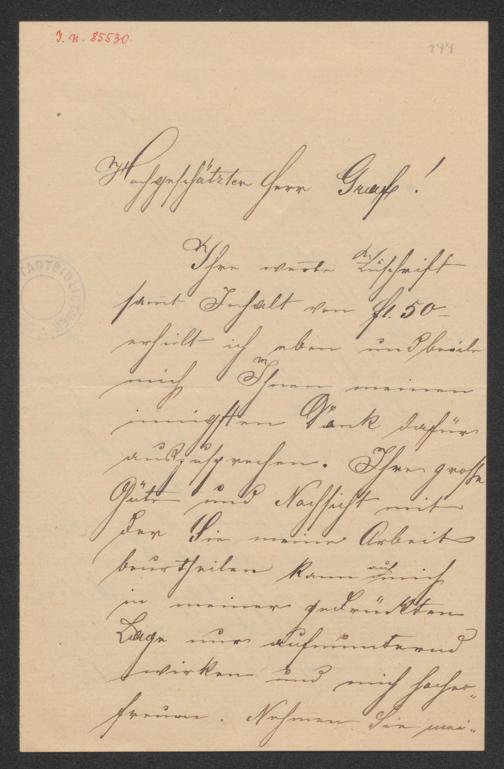 I. N. 85530.
144
Hochgeschätzter Herr Graf!
Ihre werte Zuschrift
sammt Inhalt von fl. 50–
erhielt ich eben und beeile
mich Ihnen meinen
innigsten Dank dafür
auszusprechen. Ihre große
Güte und Nachsicht mit
der Sie meine Arbeit
beurtheilen kann auf mich
in meiner gedrückten
Lage nur aufmunternd
wirken und mich hocher-
freuen. Nehmen Sie mei-
STADTBIBLIOTHEK